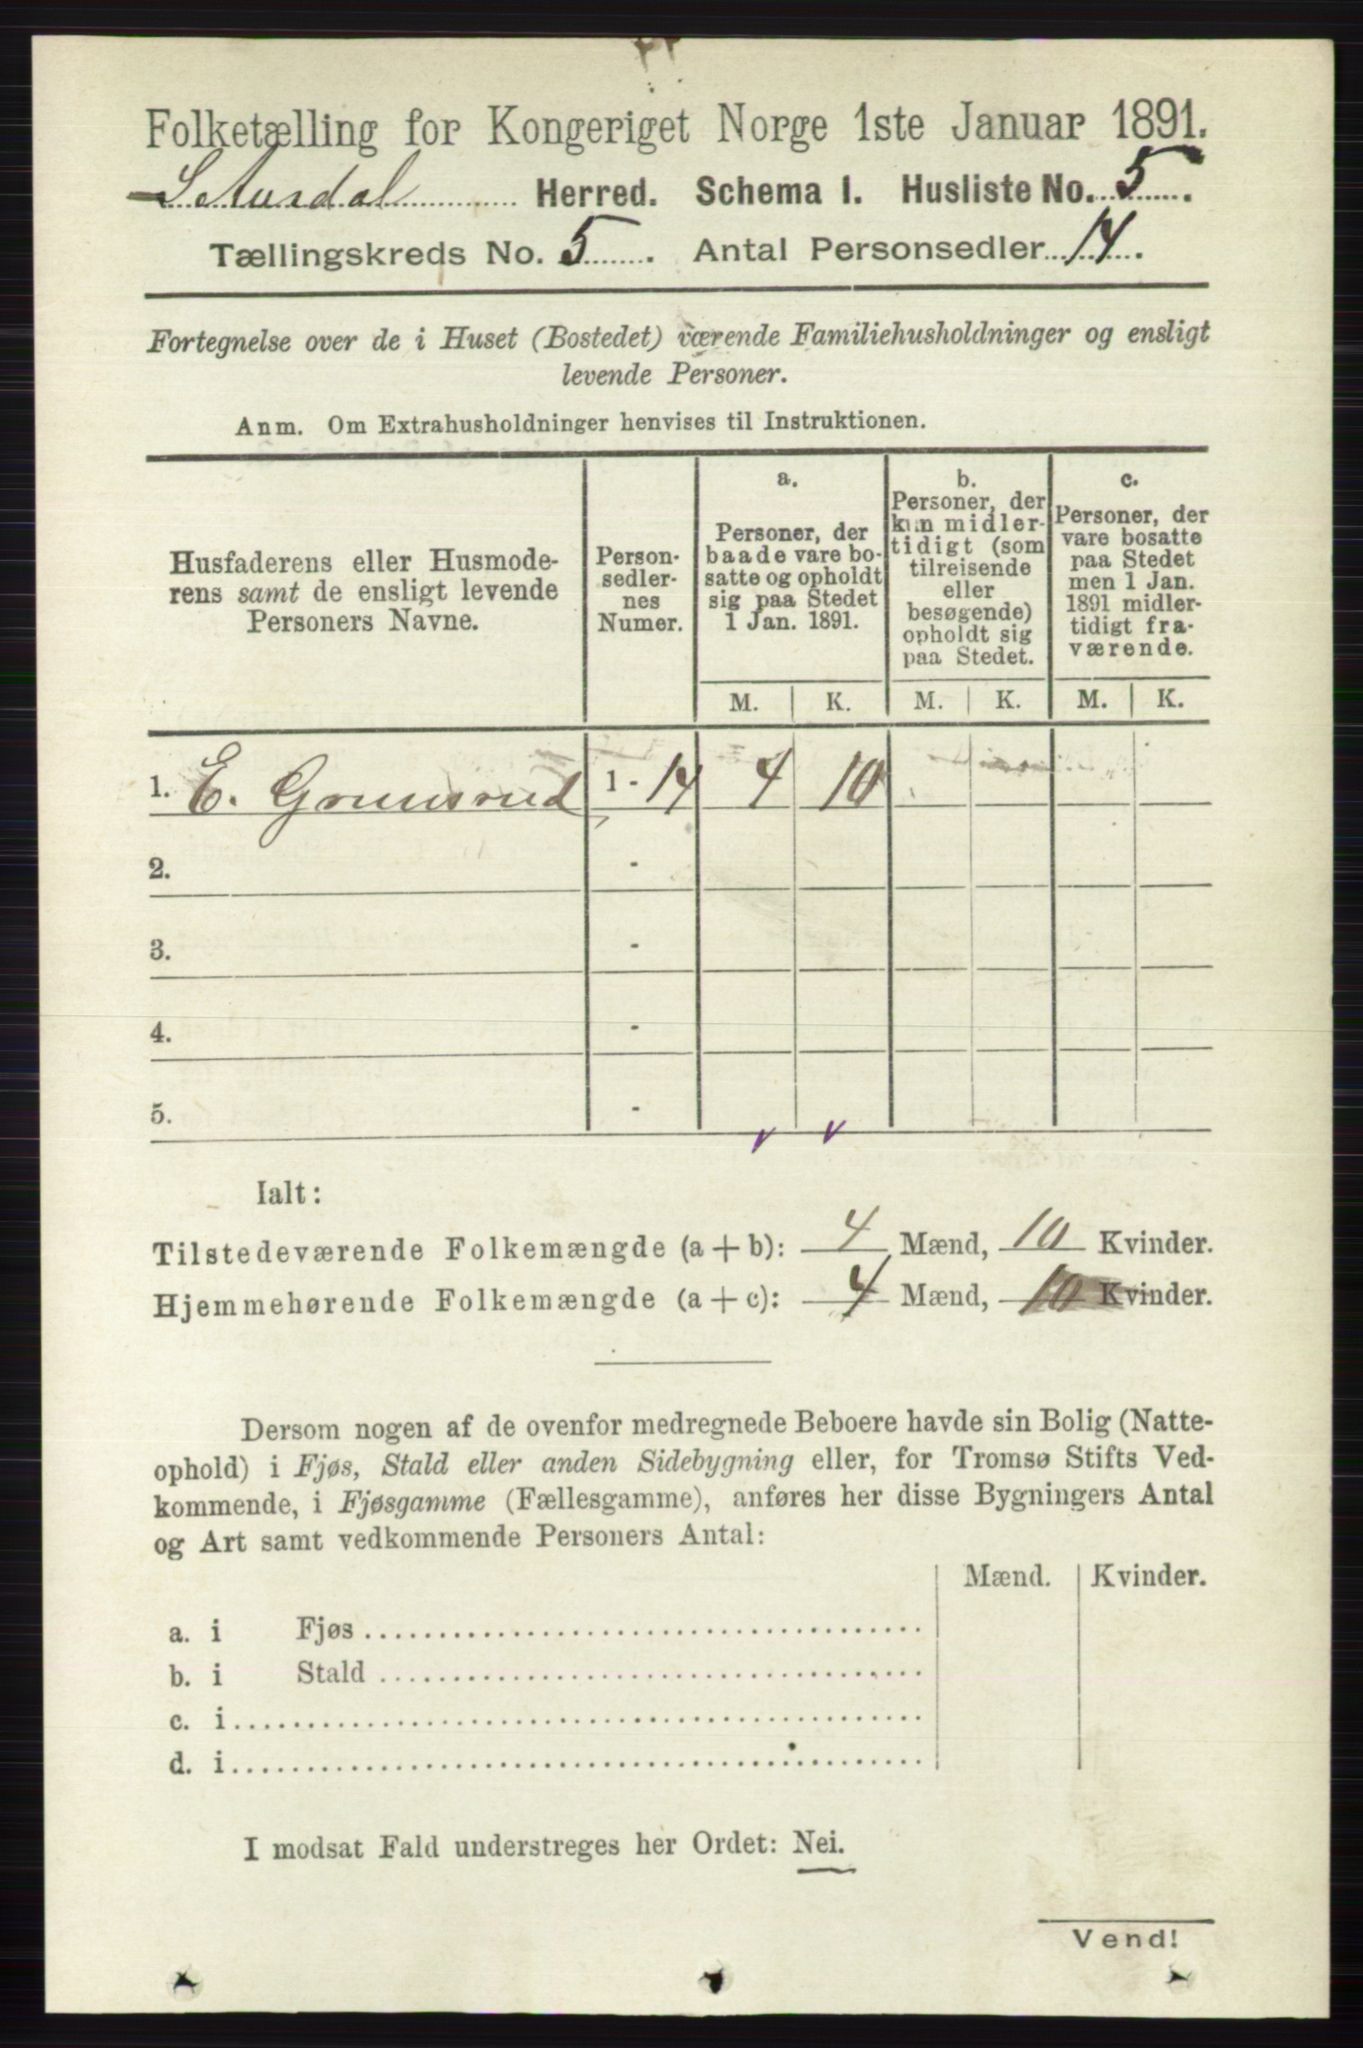 Folketælling for Kongeriget Norge 1ste Januar 1891.
S. Aurdal Herred. Schema I. Husliste No. 5.
Tællingskreds No. 5. Antal Personsedler 14.
Fortegnelse over de i Huset (Bostedet) værende Familiehusholdninger og ensligt
levende Personer.
Anm. Om Extrahusholdninger henvises til Instruktionen.
Husfaderens eller Husmode-
rens samt de ensligt levende
Personers Navne.
Person-
sedler-
nes
Numer.
a.
Personer, der
baade vare bo-
satte og opholdt
sig paa Stedet
1 Jan. 1891.
b.
Personer, der
kun midler-
tidigt (som
tilreisende
eller
besøgende)
opholdt sig
paa Stedet.
c.
Personer, der
vare bosatte
paa Stedet
men 1 Jan.
1891 midler-
tidigt fra-
værende.
M. K. M. K. M. K.
1. E. Grunsrud 1 - 14 4 10
2. -
3. -
4. -
5. -
Ialt:
Tilstedeværende Folkemængde (a + b): 4 Mænd, 10 Kvinder.
Hjemmehørende Folkemængde (a + c): 4 Mænd, 10 Kvinder.
Dersom nogen af de ovenfor medregnede Beboere havde sin Bolig (Natte-
ophold) i Fjøs, Stald eller anden Sidebygning eller, for Tromsø Stifts Ved-
kommende, i Fjøsgamme (Fællesgamme), anføres her disse Bygningers Antal
og Art samt vedkommende Personers Antal:
Mænd. Kvinder.
a. i Fjøs
b. i Stald
c. i
d. i
I modsat Fald understreges her Ordet: Nei.
Vend!